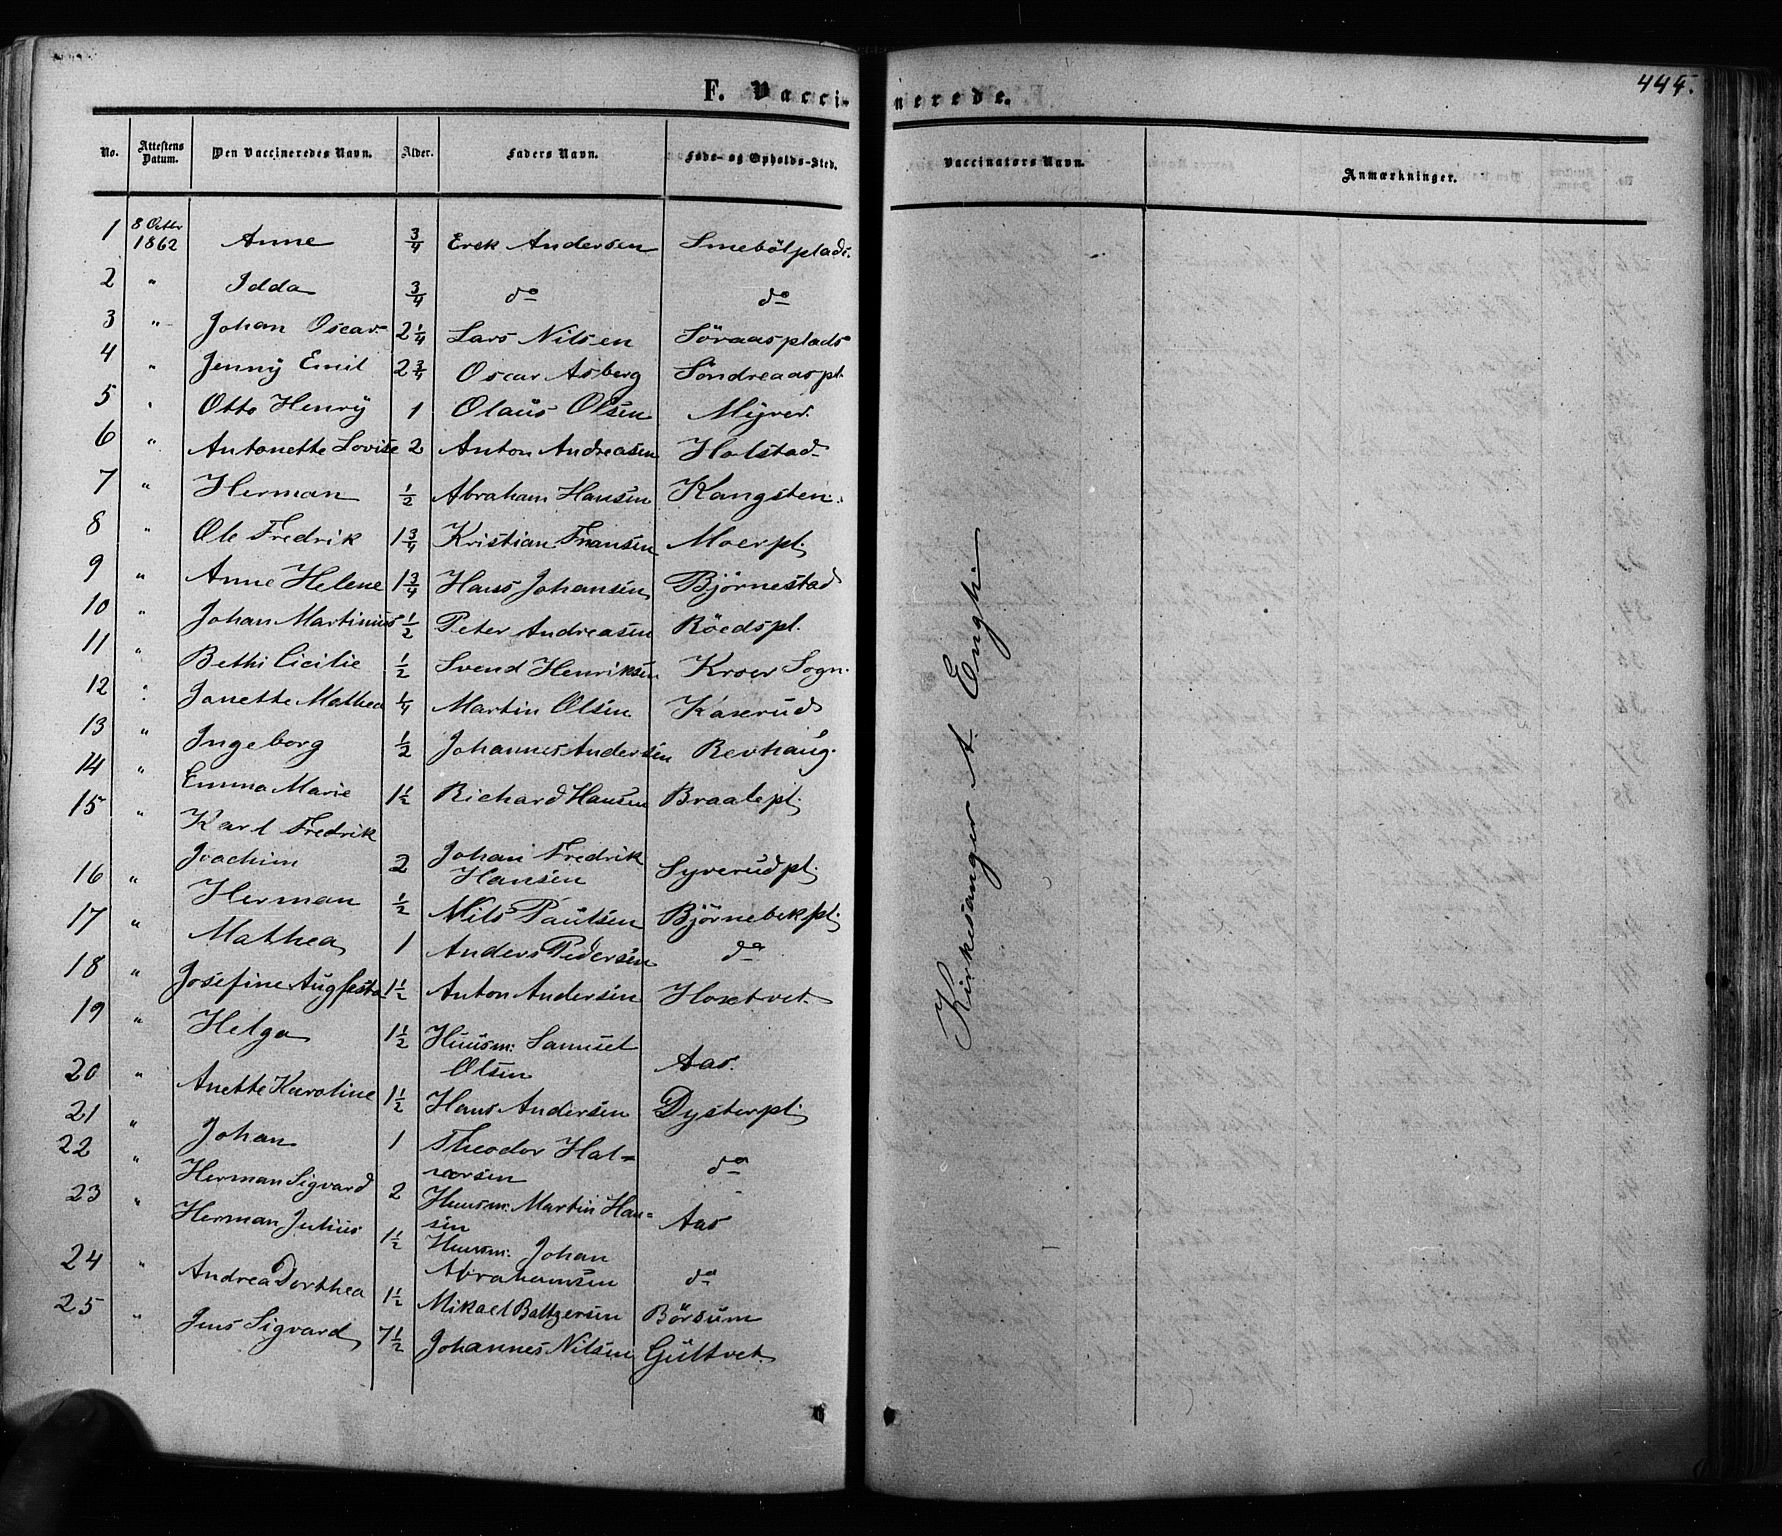 444.
F. Vaccinerede.
No. Attestens Datum. Den Vaccineredes Navn. Alder. Faders Navn. Føde- og Opholds-Sted. Vaccinators Navn. Anmærkninger.
1 8 Octbr 1862 Anne 3/4 Erek Andersen Smebölplads.
2 " Idda 3/4 do do
3 " Johan Oscar 2 1/4 Lars Nilsen Söraasplads
4 " Jenny Emil 2 3/4 Oscar Asberg Söndreaaspl.
5 " Otto Henry 1 Olaus Olsen Myrer.
6 " Antonette Lovise 2 Anton Andreasen Holstad
7 " Herman 1/2 Abraham Hansen Kangsten.
8 " Ole Fredrik 1 3/4 Kristian Fransen Moerpl.
9 " Anne Helene 1 3/4 Hans Johansen Björnestad
10 " Johan Martinius 1/2 Peter Andreasen Röedspl.
11 " Bethi Cicilie 1/2 Svend Henriksen Kroer Sogn.
12 " Janette Mathea 1/4 Martin Olsen Kaxerud
13 " Ingeborg 1/2 Johannes Andersen Revhaug.
14 " Emma Marie 1 1/2 Richard Hansen Braatepl.
15 " Karl Fredrik
Joachim 2 Johan Fredrik
Hansen Syverudpl.
16 " Herman 1/2 Nils Paulsen Björnebekpl.
17 " Mathea 1 Anders Pedersen do
18 " Josefine Augusta 1 1/2 Anton Andersen Hoxetvet.
19 " Helga 1 1/2 Huusm: Samuel
Olsen Aas.
20 " Anette Karoline 1 1/2 Hans Andersen Dysterpl.
21 " Johan 1 Theodor Hal=
vorsen do
22 " Herman Sigvard 2 Huusm: Martin Han=
sen Aas
23 " Herman Julius 1 1/2 Huusm: Johan
Abrahamsen do
24 " Andrea Dorthea 1 1/2 Mikael Baltzersen Börsum
25 " Jens Sigvard 7 1/2 Johannes Nilsen Gultvet.
Kirkesanger A. Engh.